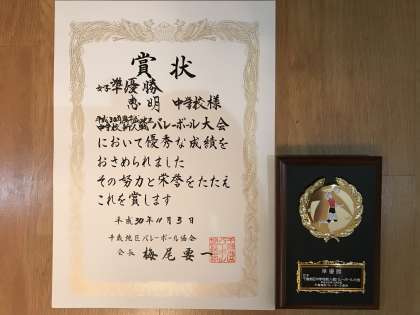 賞状
女子準優勝
恵明 中学校様
平成30年度
中学校新人戦バレーボール大会
において優秀な成績を
おさめられました
その努力と栄誉をたたえ
これを賞します
平成30年11月3日
千歳地区バレーボール協会
会長 梅尾要一
準優勝